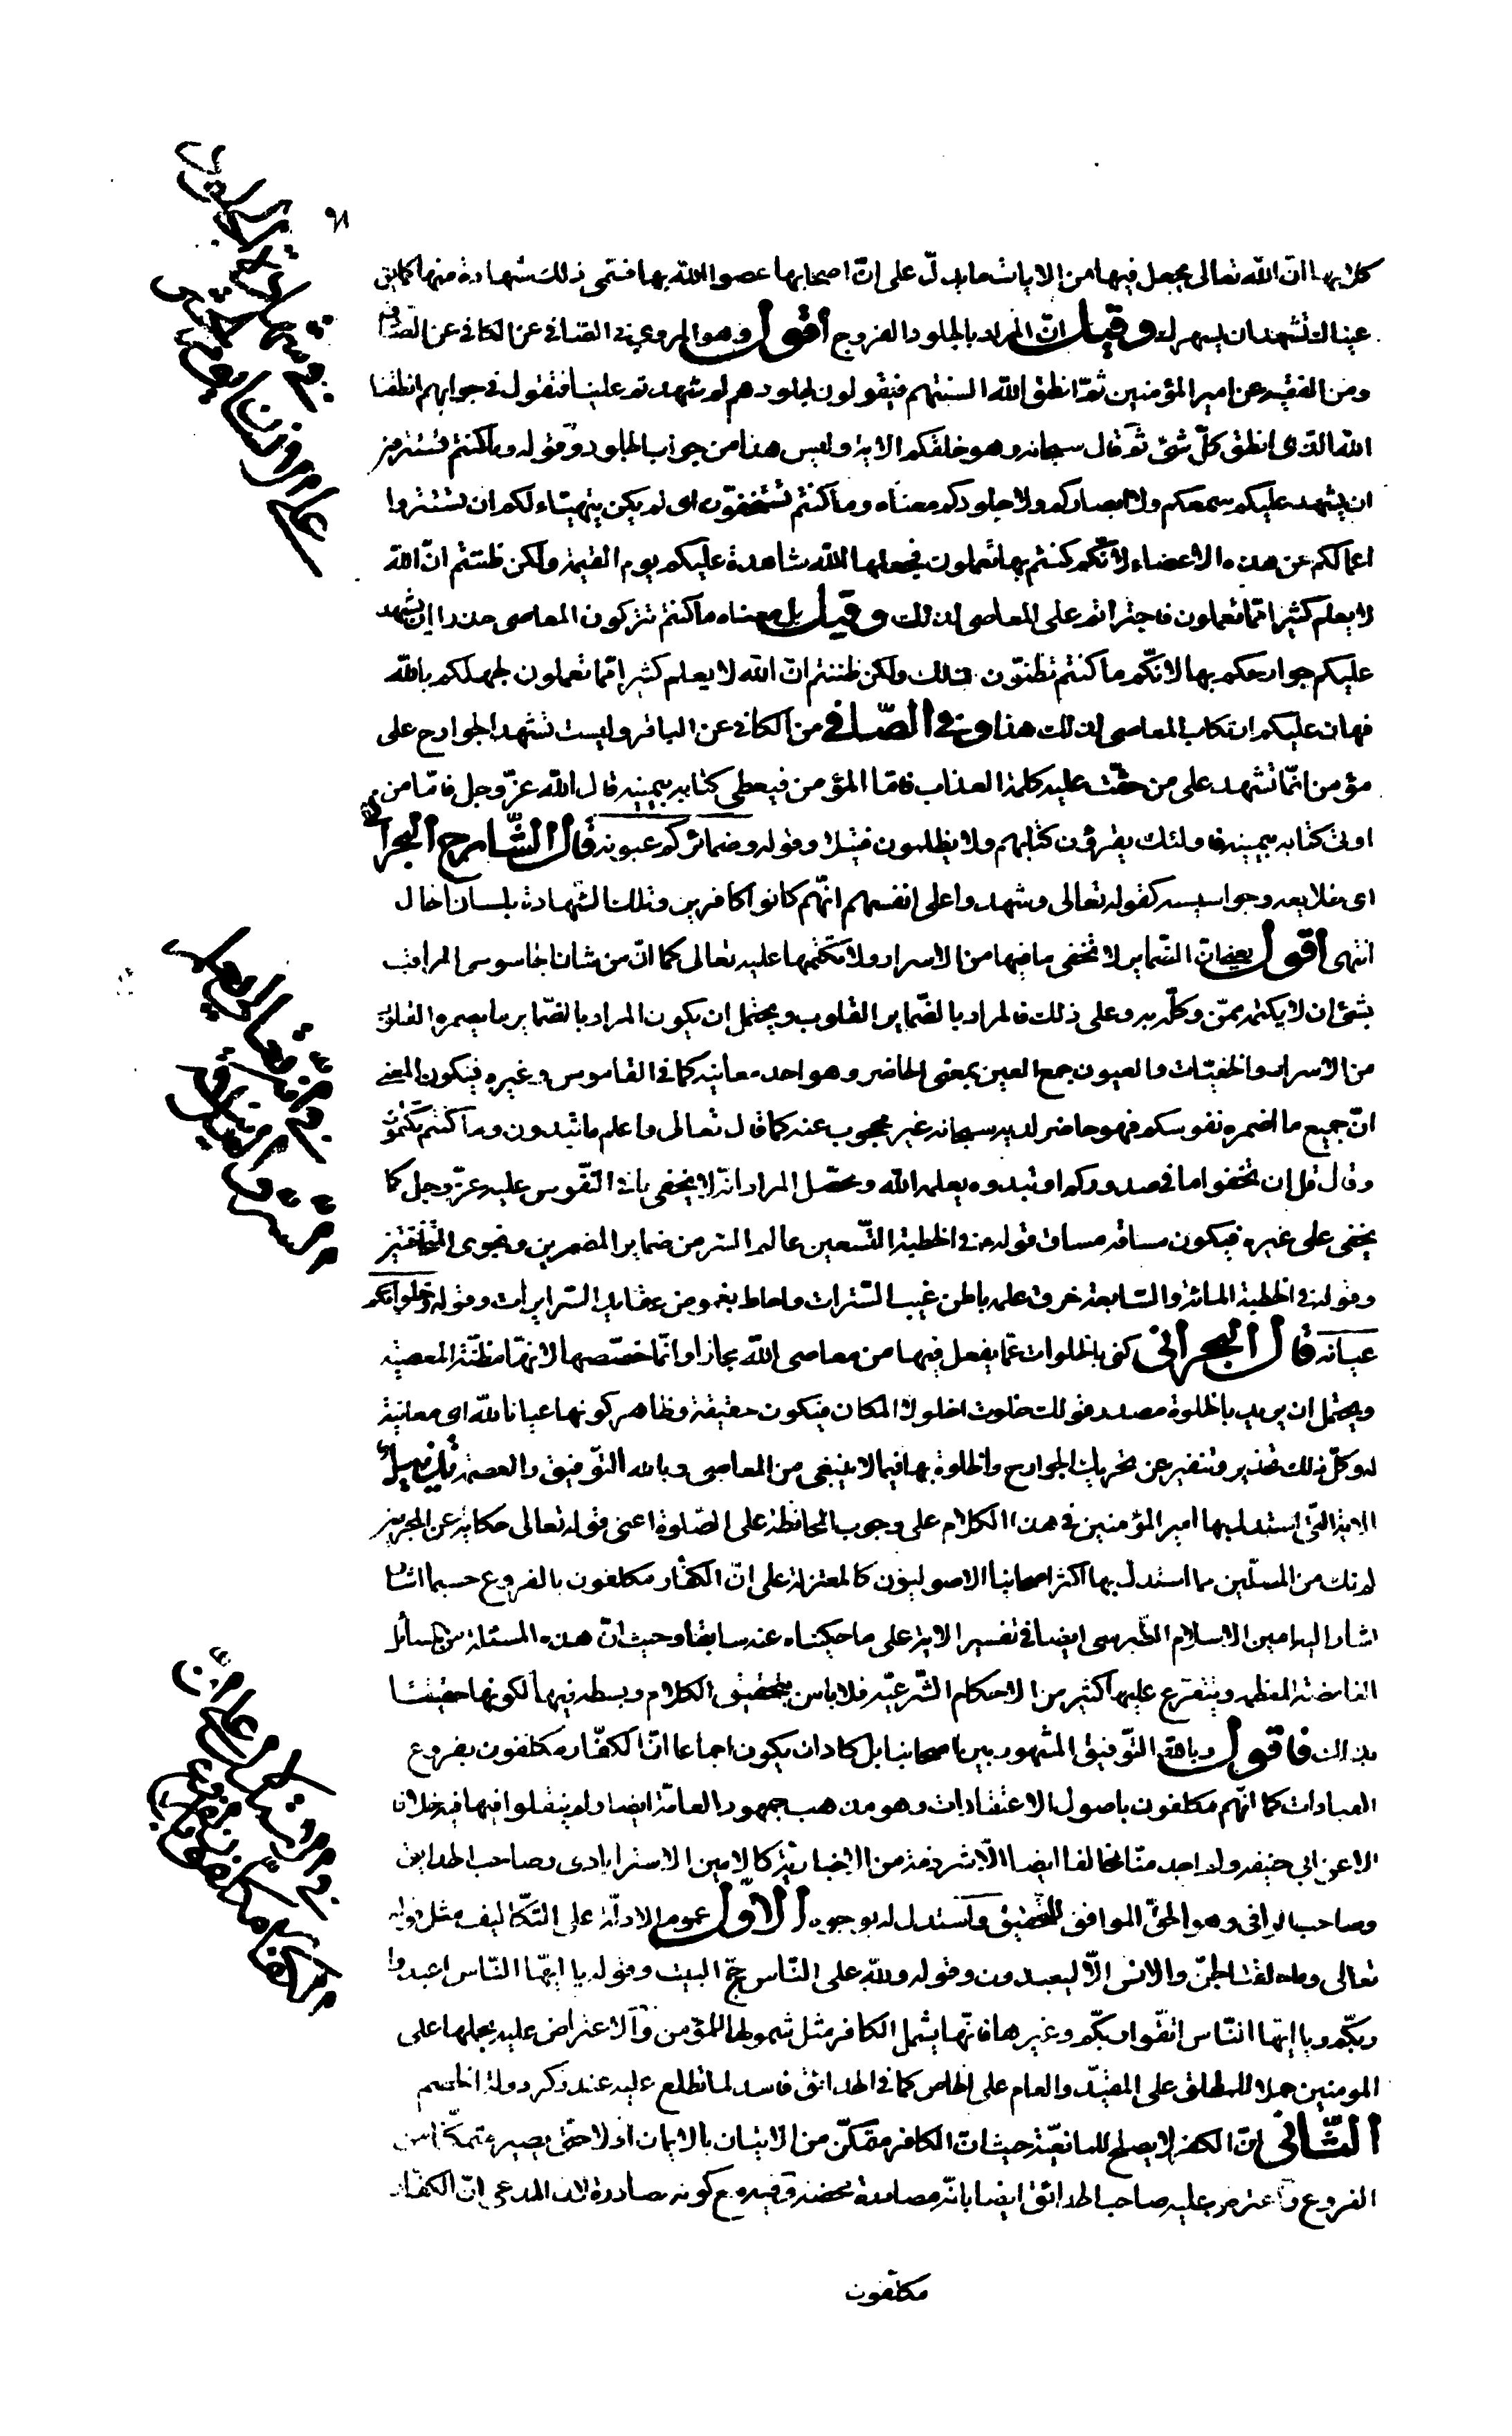 كلا بها ان الله تعالى يجعل فيها من الايات ما يدلّ على انّ اصحابها عصوا الله بها فسمى ذلك شهادة منها كما يق
عيناك تشهدان بسهرك وقيل انّ المراد بالجلود الفروج أقول وهو المروي في الصّافي عن الكافي عن الصّادق
ومن الفقيه عن امير المؤمنين ثمّ انطق الله السنتهم فيقولون لجلودهم لم شهدتم علينا فتقول في جوابهم انطقنا
الله الذى انطق كلّ شئ ثمّ قال سبحانه وهو خلقكم الاية وليس هذا من جواب الجلود وقوله وما كنتم تستترون
ان يشهد عليكم سمعكم ولا ابصاركم ولا جلودكم معناه وما كنتم تستخفّون اى لم يكن يتهيّاء لكم ان تستتروا
اعمالكم عن هذه الاعضاء لانّكم كنتم بها تعملون فجعلها الله شاهدة عليكم يوم القيمة ولكن ظننتم انّ الله
لا يعلم كثيرا ممّا تعملون فاجترائتم على المعاصى لذلك وقيل بل معناه ما كنتم تتركون المعاصى حذرا ان يشهد
عليكم جوارحكم بها لانّكم ما كنتم تظنّون ذلك ولكن ظننتم انّ الله لا يعلم كثيرا ممّا تعملون لجهلكم بالله
فهان عليكم ارتكاب المعاصى لذلك هذا وفي الصّافي من الكافي عن الباقر وليست تشهد الجوارح على
مؤمن انّما تشهد على من حقّت عليه كلمة العذاب فامّا المؤمن فيعطى كتابه بيمينه قال الله عزّ وجل فامّا من
اوتى كتابه بيمينه فاولئك يقرؤن كتابهم ولا يظلمون فتيلا وقوله وضمائركم عيونه قال الشّارح البحراني
اى طلايعه وجواسيسه كقوله تعالى وشهدوا على انفسهم انّهم كانوا كافرين وتلك الشهادة بلسان الحال
انتهى أقول يعني انّ الضّماير لا تخفى ما فيها من الاسرار ولا تكتمها عليه تعالى كما انّ من شان الجاسوس المراقب
بشئ ان لا يكتمه ممّن وكّله به وعلى ذلك فالمراد بالضّماير القلوب ويحتمل ان يكون المراد بالضّماير ما يضمره القلوب
من الاسرار والخفيّات والعيون جمع العين بمعنى الحاضر وهو احد معانيه كما في القاموس وغيره فيكون المعنى
انّ جميع ما اضمره نفوسكم فهو حاضر لديه سبحانه غير محجوب عنه كما قال تعالى واعلم ما تبدون وما كنتم تكتمون
وقال قل ان تخفوا ما في صدوركم او تبدوه يعلمه الله ومحصّل المراد انّه لا يخفى بات النّفوس عليه عزّ وجل كما
يخفى على غيره فيكون مساقه مساق قوله في الخطبة التّسعين عالم السّر من ضماير المضمرين ونجوى المتخافتين
وقوله في الخطبة المائة والسّابعة خرق علمه باطن غيب السّترات واحاط بغموض عقايد السّريرات وقوله وخلواتكم
عيانه قال البحراني كنى بالخلوات عمّا يفعل فيها من معاصى الله مجازا وانّما خصّصها لانّها مظنّة المعصية
ويحتمل ان يريد بالخلوة مصدر قولك خلوت اخلو لا المكان فيكون حقيقة وظاهر كونها عيانا لله اى معاينة
له وكلّ ذلك تحذير وتنفير عن تحريك الجوارح والخلوة بها فيما لا ينبغى من المعاصى وبالله التّوفيق والعصمة تذييل
الاية التّى استدل بها امير المؤمنين في هذا الكلام على وجوب المحافظة على الصّلوة اعنى قوله تعالى حكاية عن المجرمين
لم نك من المصلّين مما استدلّ بها اكثر اصحابنا الاصوليّون كالمعتزلة على انّ الكفّار مكلفون بالفروع حسبما اشار
اشار اليه امين الاسلام الطّبرسى ايضا في تفسير الاية على ما حكيناه عنه سابقا وحيث انّ هذه المسئلة من المسائل
الغامضة العظيمة ويتفرّع عليها كثير من الاحكام الشّرعيّة فلا باس بتحقيق الكلام وبسطه فيها لكونها حقيقا
بذلك فأقول وبالله التّوفيق المشهور بين اصحابنا بل كاد ان يكون اجماعا انّ الكفّار مكلفون بفروع
العبادات كما انّهم مكلفون باصول الاعتقادات وهو مذهب جمهور العامّة ايضا ولم ينقلوا فيها فيه خلافا
الا عن ابي حنيفه ولم اجد منّا مخالفا ايضا الّا شرذمة من الاخباريّة كالامين الاسترابادى وصاحب الحدايق
وصاحب الوافى وهو الحقّ الموافق للتّحقيق واستدل له بوجوه الأوّل عموم الادلّة على التّكاليف مثل قوله
تعالى وما خلقت الجنّ والانس الّا ليعبدون وقوله ولله على النّاس حجّ البيت وقوله يا ايّها النّاس اعبدوا
ربّكم ويا ايّها النّاس اتّقوا ربّكم وغيرها فانّها يشمل الكافر مثل شمولها للمؤمن والاعتراض عليه بحملها على
المومنين حملا للمطلق على المقيّد والعام على الخاص كما في الحدائق فاسد لما تطلع عليه عند ذكر ادلة الخصم
الثّانى انّ الكفر لا يصلح للمانعيّة حيث انّ الكافر متمكّن من الاتيان بالايمان اوّلا حتّى يصير متمكّنا من
الفروع واعترض عليه صاحب الحدائق ايضا بانّه مصادرة محضة وفيه منع كونه مصادرة لان المدعى انّ الكفّار
مكلّفون